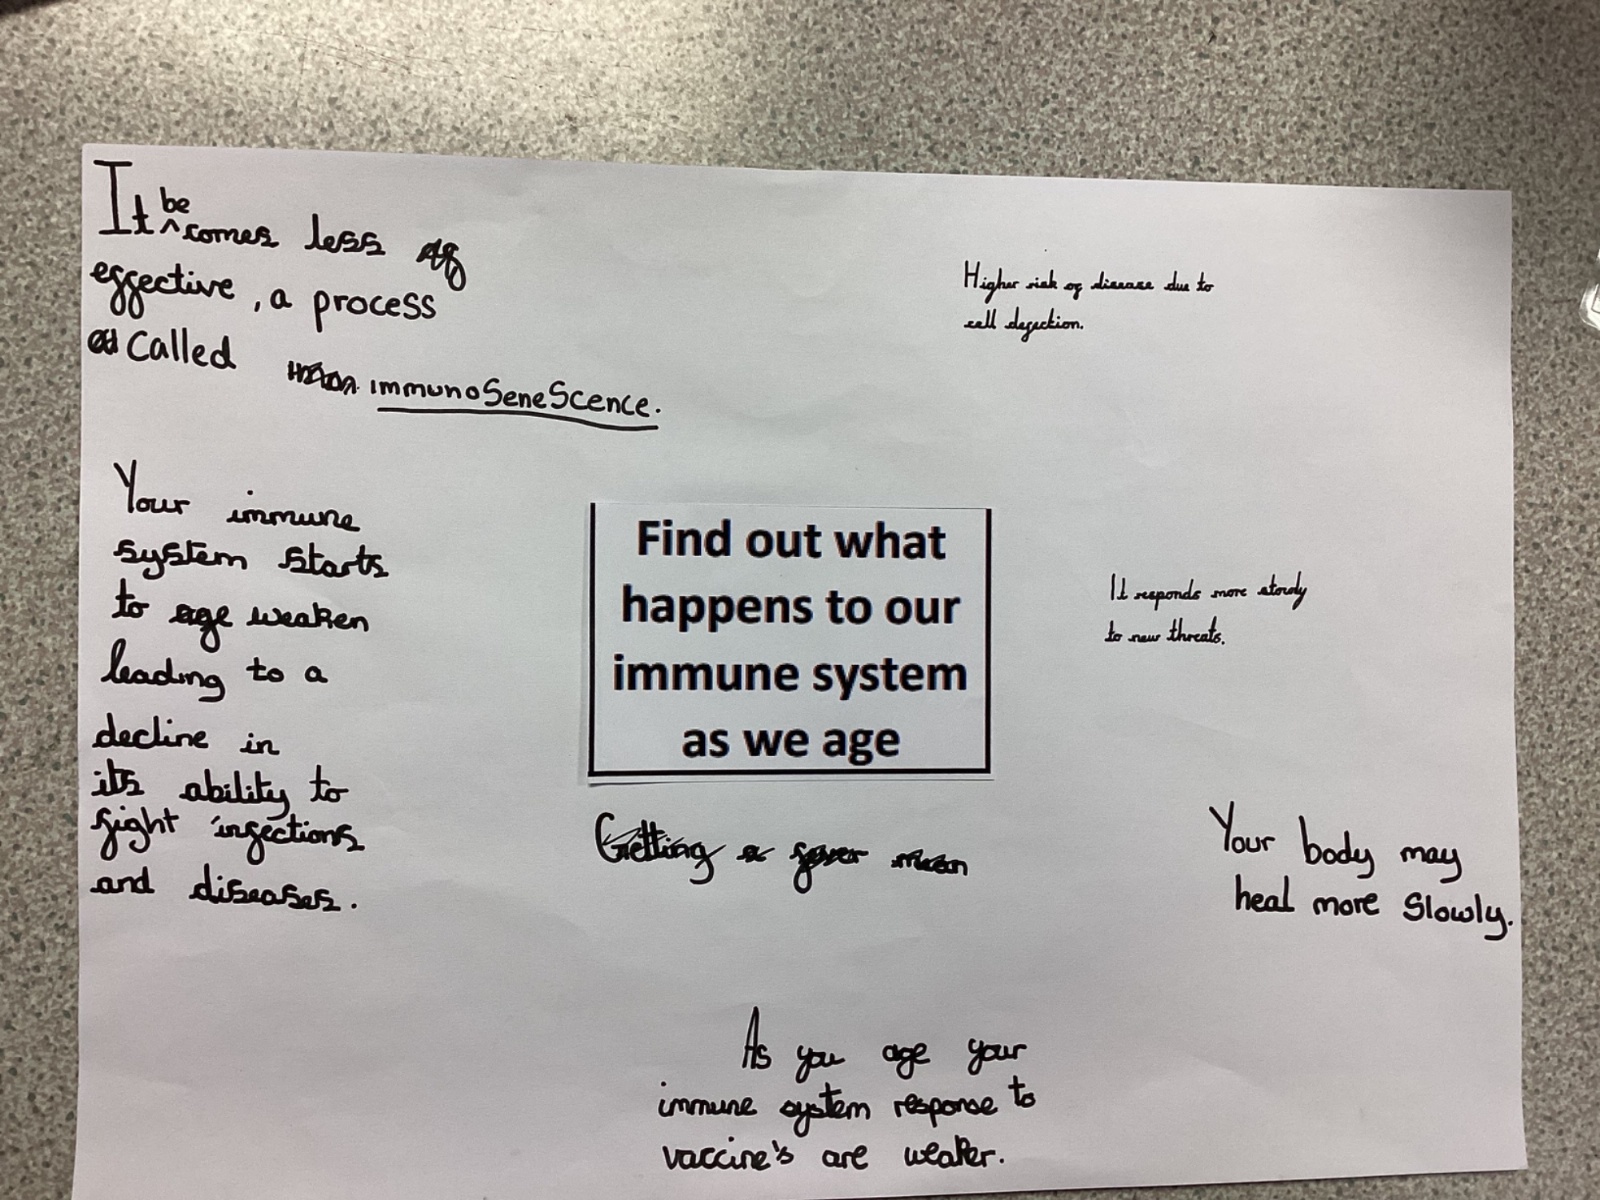 It becomes less
effective, a process
called immunoSeneScence.
Higher risk of disease due to
cell defection.
Your immune
system starts
to age weaken
leading to a
decline in
its ability to
fight infections
and diseases.
Find out what
happens to our
immune system
as we age
It responds more slowly
to new threats.
Getting a fever mean
Your body may
heal more Slowly.
As you age your
immune system response to
vaccine's are weaker.